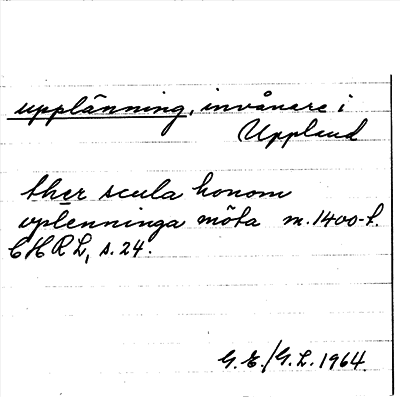 upplänning, invånare i
Uppland
ther scula honom
vplenninga möta m. 1400-t.
CHRL, s. 24.
G.E./G.L. 1964.